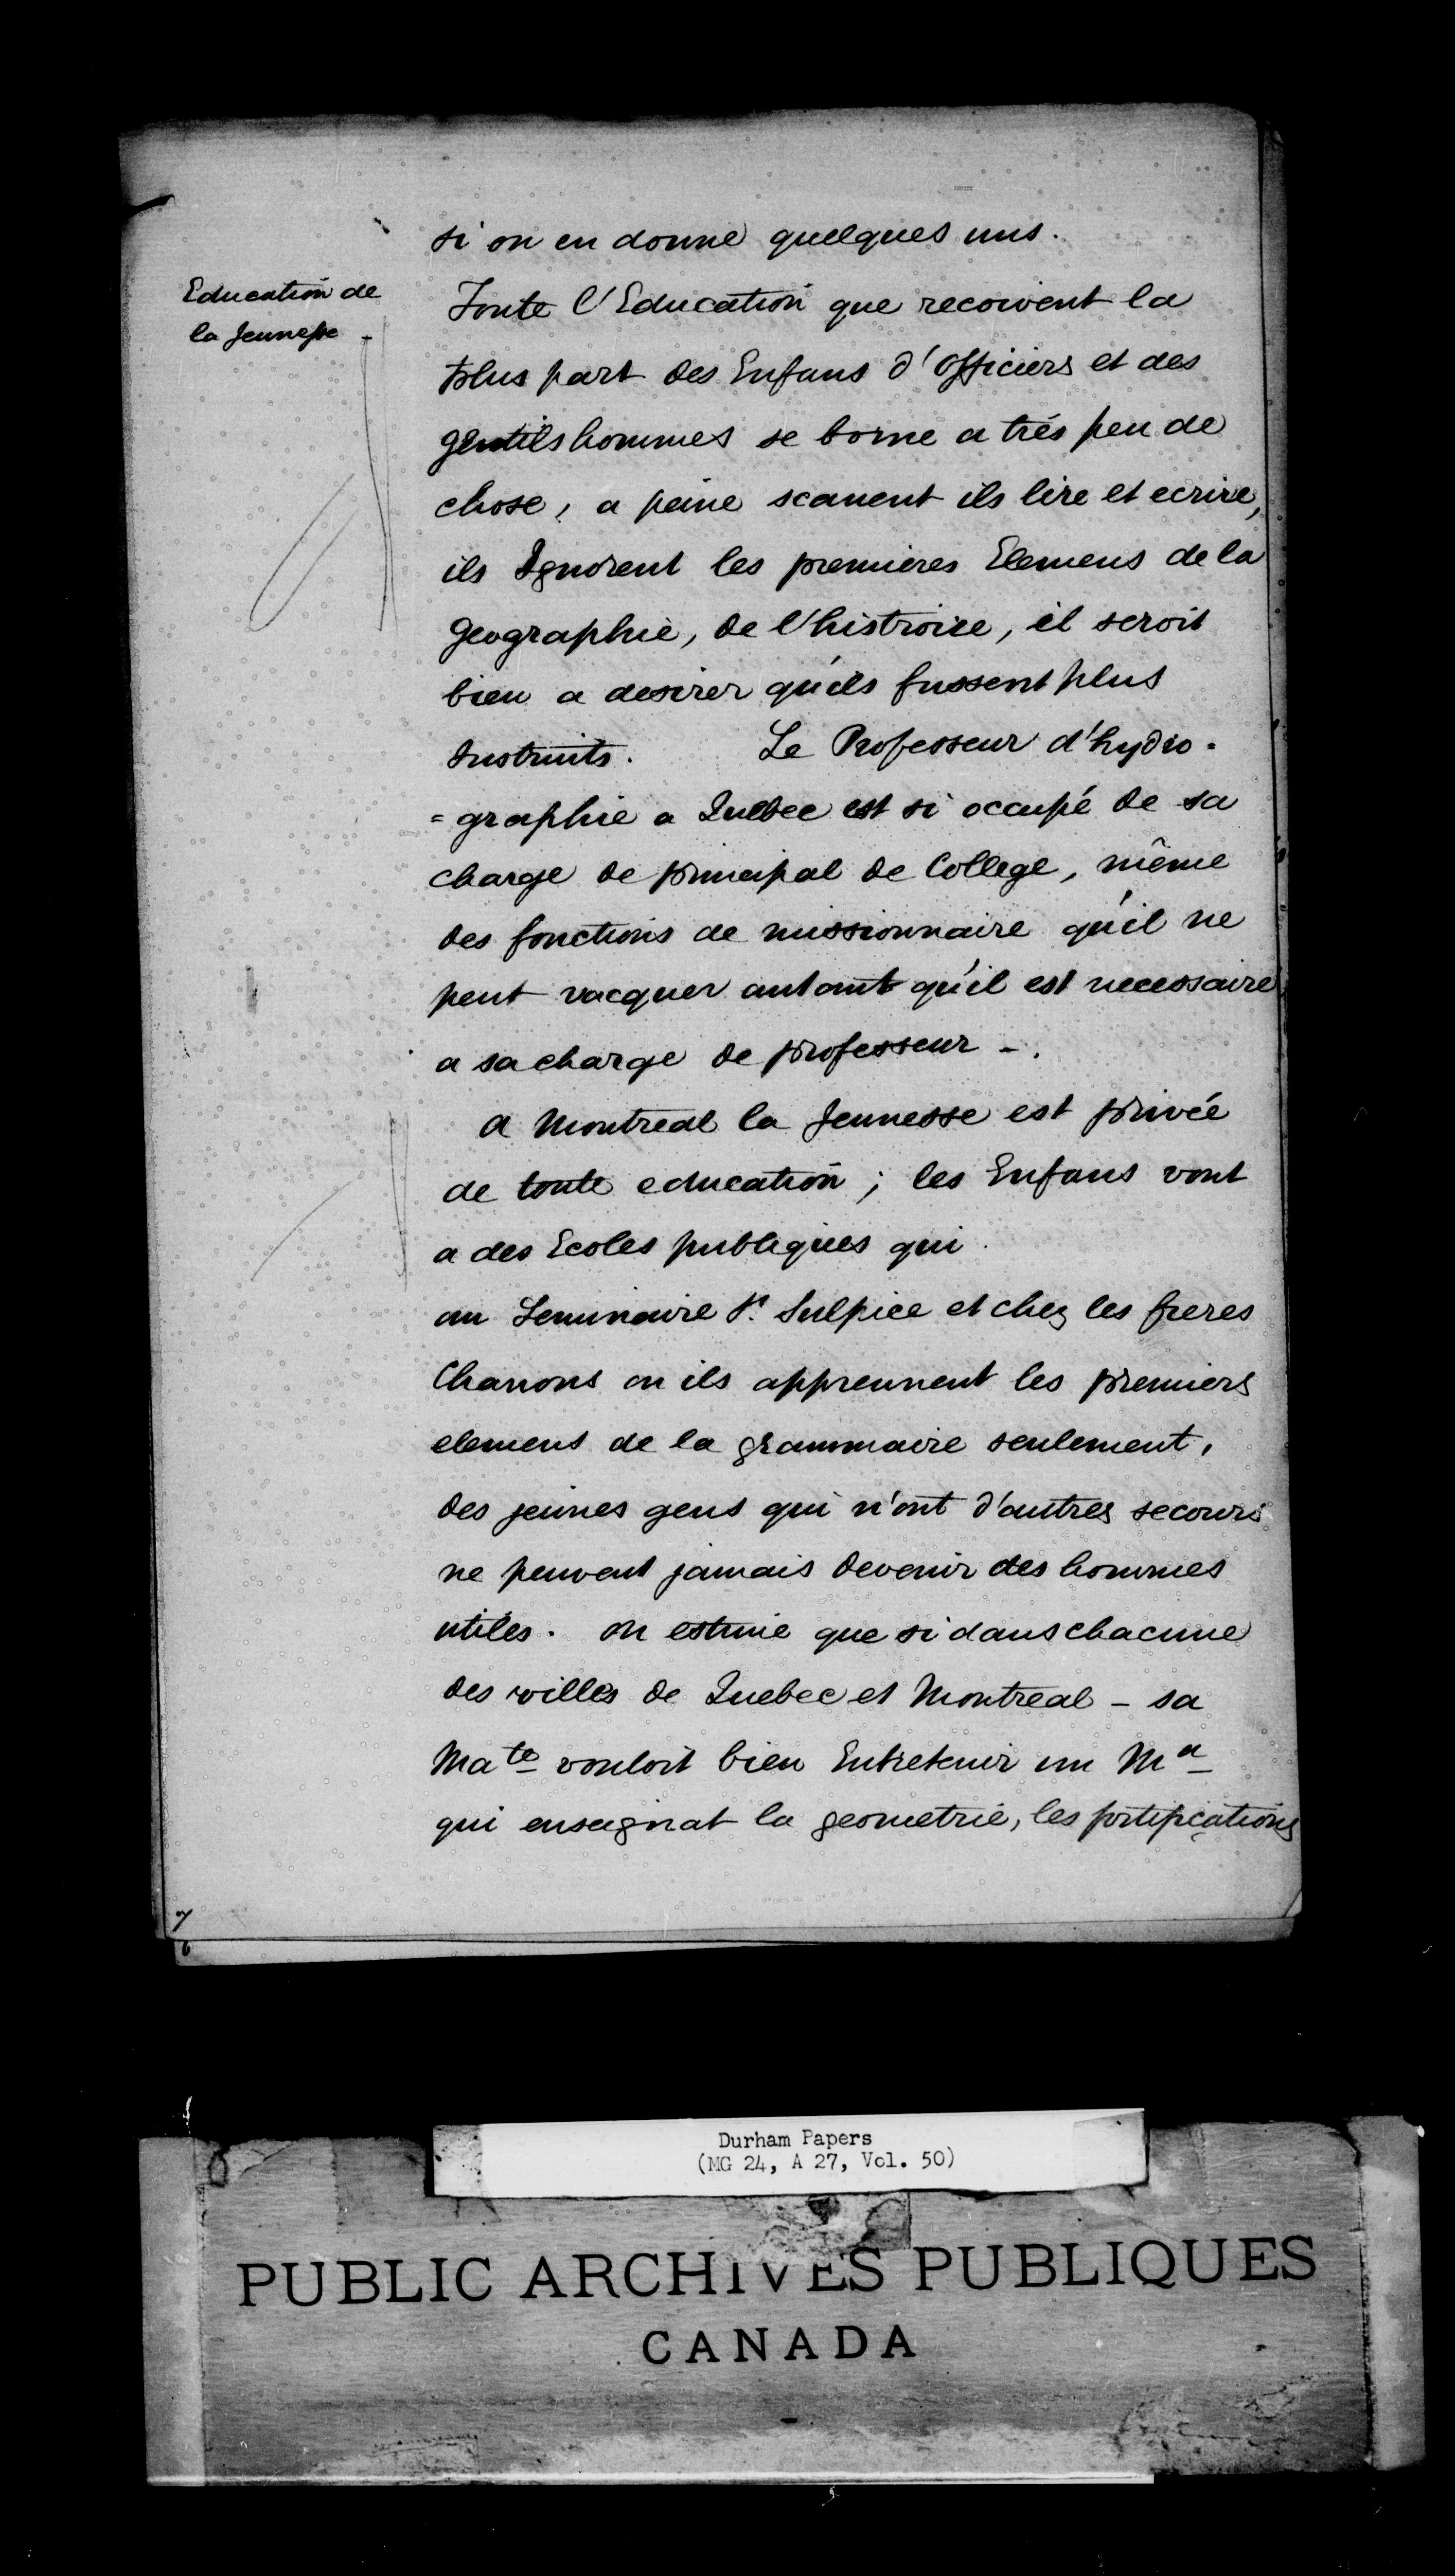 si on en donne quelques uns.
Education de
la Jeunesse -
Toute l'Education que recoivent la
plus part des Enfans d'officiers et des
gentilshommes se borne a trés peu de
chose, a peine scauent ils lire et ecrire,
ils Ignorent les premieres Elemens de la
geographie, de l'histroire, il seroit
bien a desirer qu'ils fussent plus
Instruits. Le Professeur d'hydro-
=graphie a Quebec est si occupé de sa
charge de principal de College, même
des fonctions de missionnaire qu'il ne
peut vacquer autant qu'il est necessaire
a sa charge de professeur -.
A Montreal la Jeunesse est privée
de toute education; les Enfans vont
a des Ecoles publiques qui
au Seminaire St. Sulpice et chez les freres
Charons ou ils apprennent les premiers
elemens de la grammaire seulement,
des jeunes gens qui n'ont d'autres secours
ne peuvent jamais devenir des hommes
utiles. on estime que si dans chacune
des villes de Quebec et Montreal - sa
Mate vouloit bien Entretenir un
qui enseignat la geometrie, les fortifications
7
6
Durham Papers
(MG 24, A 27, Vol. 50)
PUBLIC ARCHIVES PUBLIQUES
CANADA